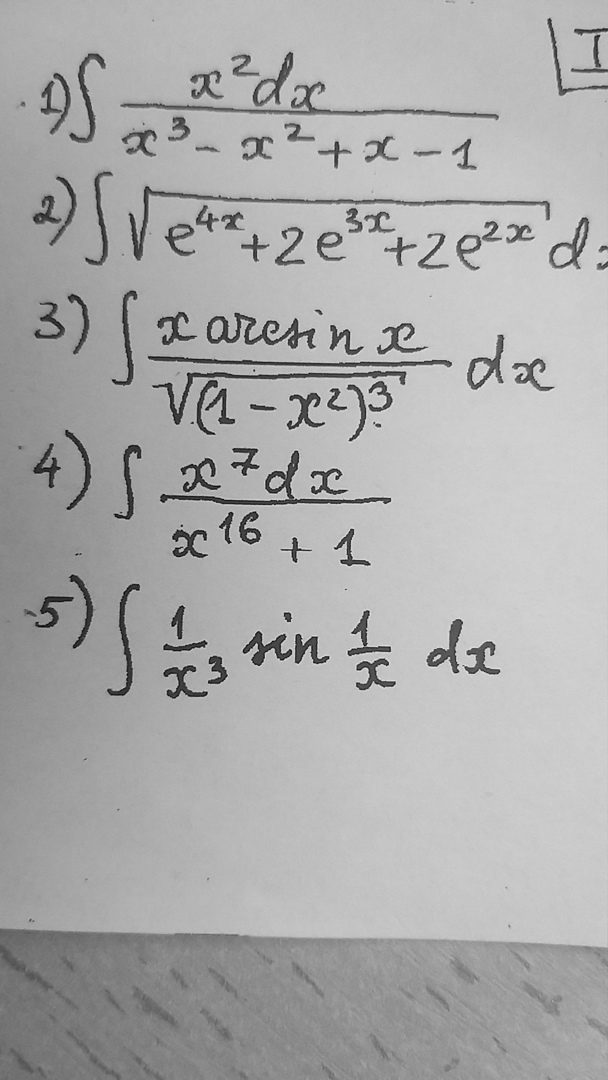 I
1) ∫ x²dx / (x³ - x² + x - 1)
2) ∫ √(e⁴ˣ + 2e³ˣ + 2e²ˣ) dx
3) ∫ x arcsin x / √((1 - x²)³) dx
4) ∫ x⁷dx / (x¹⁶ + 1)
5) ∫ 1/x³ sin 1/x dx